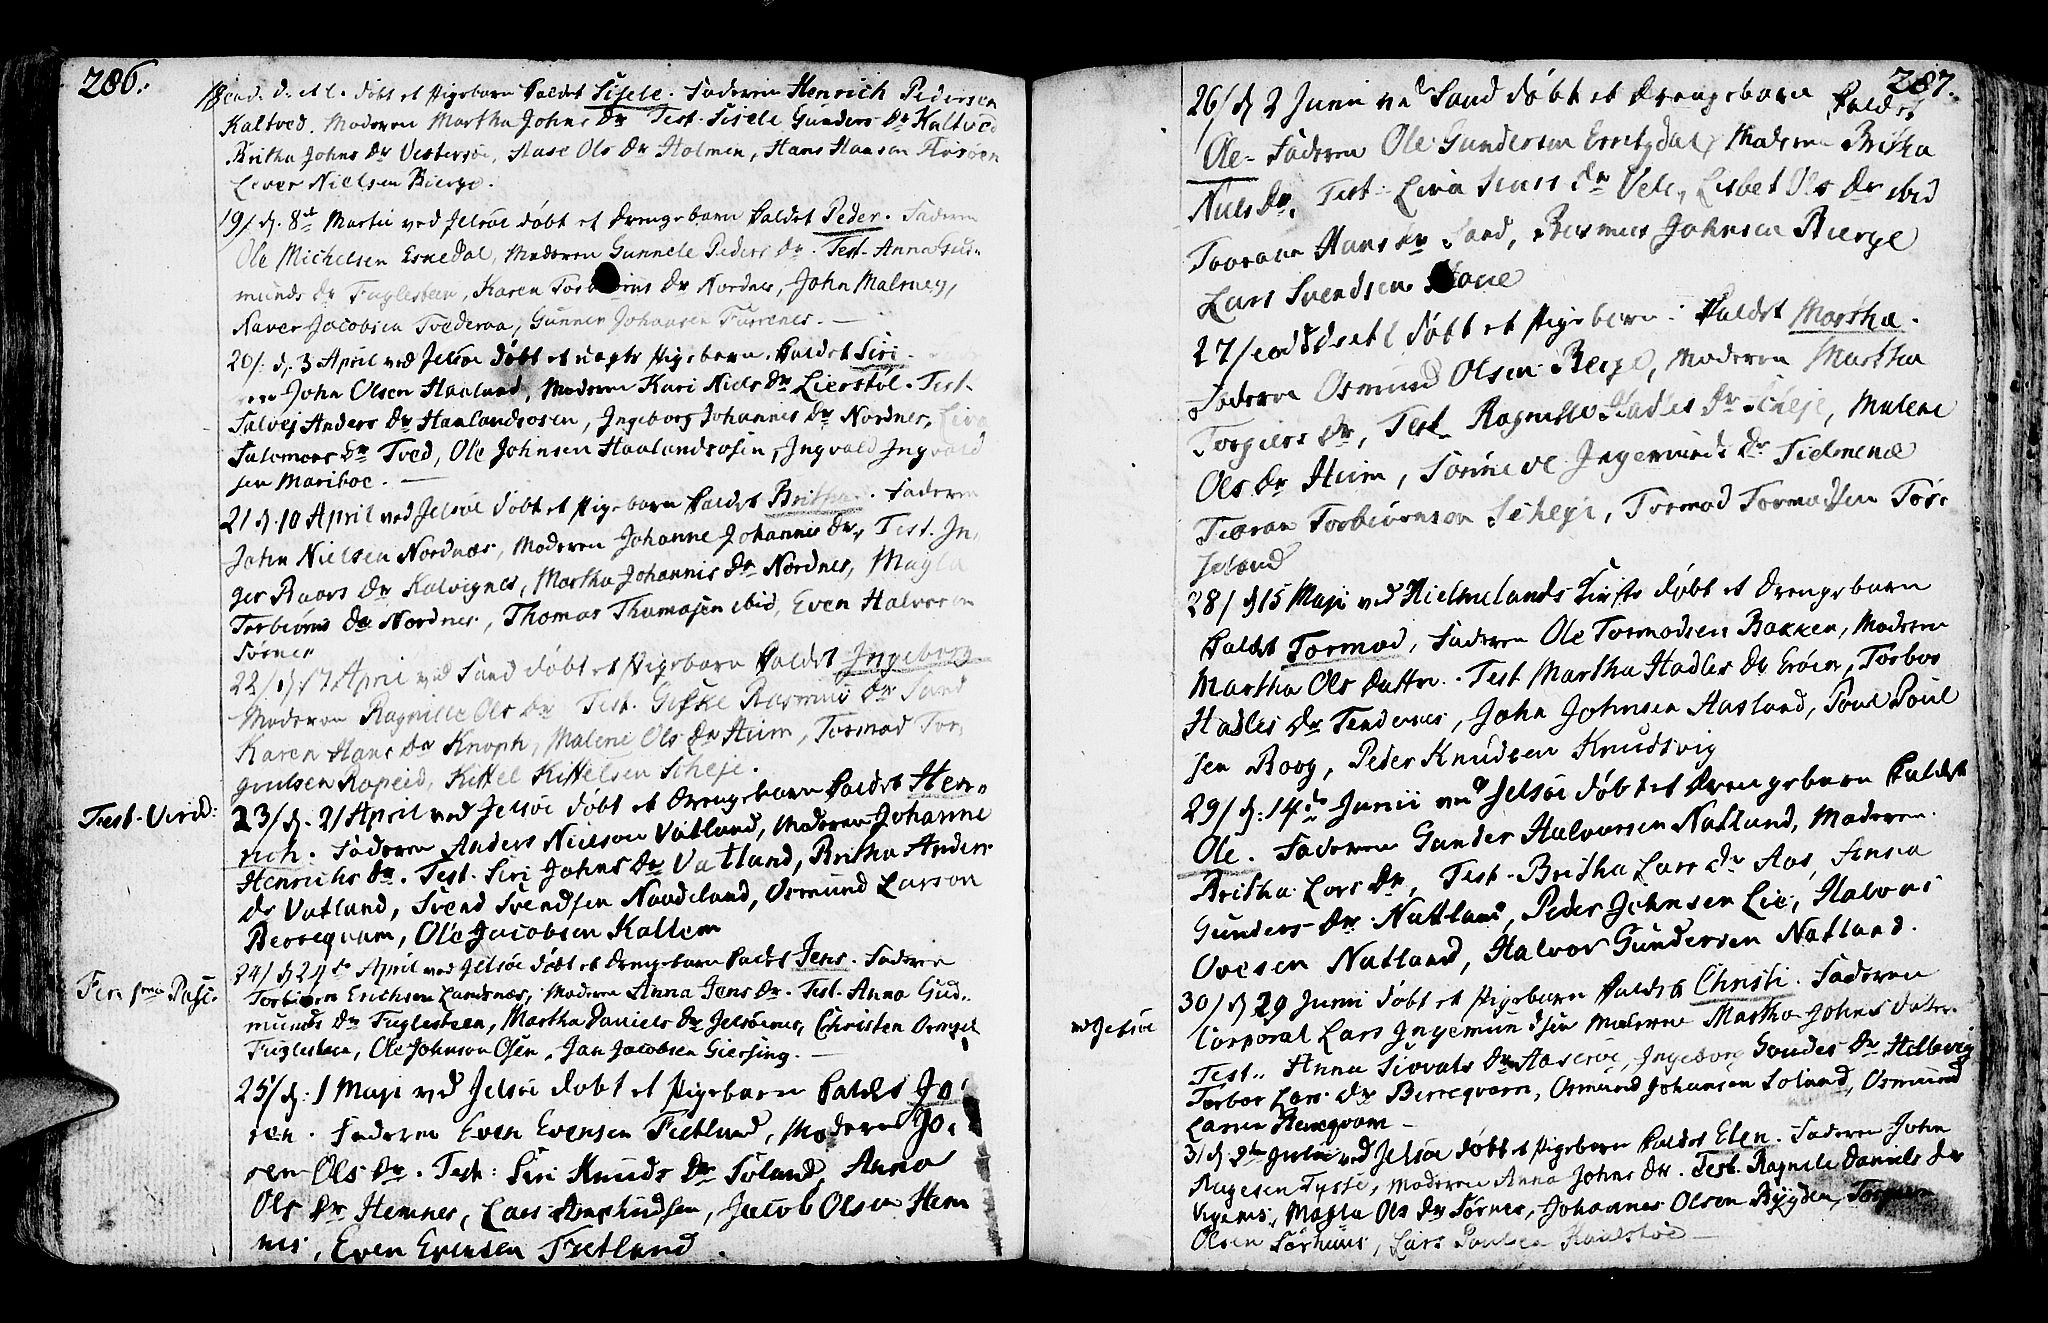 286.
18/ ead. d. et l. döbt et Pigebarn kaldet Sisele. Faderen Henrich Pedersen
Kaltved. Moderen Martha Johns Dr Test. Sisele Gunders Dr Kaltved
Britha Johns Dr Vestersöe, Aase Ols Dr Holmen, Hans Hansen
Lever Nielsen Bierge.
19/ d. 8de Martii ved Jelsöe döbt et Drengebarn kaldet Peder. Faderen
Ole Michelsen Eskedal, Moderen Gunnele Peders Dr. Test. Anna Gud-
munds Dr Fuglesteen, Karen Torbiörns Dr Nordnes, John Malmeg,
Naver Jacobsen Tvederaa, Gunner Johansen Furrenes. —
20/ d. 3 April ved Jelsöe döbt et uægte Pigebarn kaldet Siri.
John Olsen Haaland, Moderen Kari Niels Dr Lierstöl. Test.
Salvej Anders Dr Haalandsosen, Ingeborg Johannes Dr Nordnes, Liva
Salomons Dr Tved, Ole Johnsen Haalandsosen, Ingvald Ingvald
sen Mariboe. —
21 d. 10 April ved Jelsöe döbt et Pigebarn kaldet Britha. Faderen
John Nielsen Nordnæs, Moderen Johanne Johannis Dr, Test. In-
ger Roars Dr Kalvignes, Martha Johannis Dr Nordnes, Magla
Torbiörns Dr Nordnes, Thomas Thomasen ibid, Even Halvorsen
Sörnes
22/ d. 17 April ved Sand döbt et Pigebarn kaldet Ingeborg.
Moderen Ragnille Ols Dr Test. Giske Rasmus Dr Sand
Karen Hans Dr Knoph, Malene Ols Dr Hiim, Tormod Tor-
Rapeid, Kittel Kittelsen Scheje.
Test. Virid:
23/ d. 21 April ved Jelsöe döbt et Drengebarn kaldet Hen-
rich. Faderen Anders Nielsen Vatland, Moderen Johanne
Henrichs Dr. Test. Siri Johns Dr Vatland, Britha Anders
Dr Vatland, Svend Svendsen Naadeland, Osmund Larsen
Berreqvam, Ole Jacobsen Kaltem
Fer. 1ma Pasc.
24/ d. 24de April ved Jelsöe döbt et Drengebarn kaldet Jens. Faderen
Torbiörn Erichsen Landsnæs, Moderen Anna Jens Dr. Test. Anna Gud-
munds Dr Fuglesteen, Martha Daniels Dr Jelsöenes, Christen
Fuglesteen, Ole Johnson Osen, Jan Jacobsen Giersing. —
25/ d: 1 Maji ved Jelsöe döbt et Pigebarn kaldet Jo-
ren. Faderen Even Evensen Fietland, Moderen Jo-
ren Ols Dr. Test: Siri Knuds Dr Söland, Anna
Ols Dr Hemnes, Lars Amundsen, Jacob Olsen Hem
nes, Even Evensen Fietland.
287.
26/ d 2 Junii ved Sand döbt et Drengebarn kaldet
Ole. Faderen Ole Gundersen Moderen Britha
Niels Dr, Test. Liva Dr Lisbet Ols Dr ibid
Hans Dr Sand, Rasmus Johnsen Bierge
Lars Svendsen
27/ eod d et l döbt et Pigebarn kaldet Martha.
Faderen Osmund Olsen Berge, Moderen Martha
Torgiers Dr, Test. Ragnille Hadles Dr Scheje, Malene
Ols Dr Hiim, Sönneve Ingemunds Dr Tielmenæ
Tiæran Torbiörnsen Scheje, Tormod Tormodsen Tös-
seland
28/ d 15 Maji ved Hielmelands Kirke döbt et Drengebarn
kaldet Tormod, Faderen Ole Tormodsen Bakken, Moderen
Martha Ols Datter. Test Martha Hadles Dr Eröen, Torbor
Hadles Dr Tendenes, John Johnsen Aasland, Poul Poul
sen Boog, Peder Knudsen Knudsvig
29/ d: 14de Junii ved Jelsöe döbt et Drengebarn kaldet
Ole. Faderen Gunder Halvorsen Natland, Moderen
Britha Lars Dr, Test. Britha Lars Dr Aas, Anna
Gunders Dr Natland, Peder Johnsen Lie, Halvor
Ovesen Natland, Halvor Gundersen Natland.
ved Jelsöe
30/ d 29 Junii döbt et Pigebarn kaldet Christi. Faderen
Corporal Lars Ingemundsen Moderen Martha Johns Datter.
Test. Anna Siovats Dr Aaseröe, Ingeborg Goudes Dr Hellevig
Torbor Lars Dr Berreqvam, Osmund Johansen Soland, Osmund
Larsen Berreqvam —
31/ d 3de Julii ved Jelsöe döbt et Pigebarn kaldet Elen. Faderen John
Aagesen Tysse, Moderen Anna Johns Dr. Test. Ragnele Daniels Dr
Magla Ols Dr Sörnes, Johannes Olsen Bygden, Torgier
Olsen Sörhuus, Lars Poulsen —